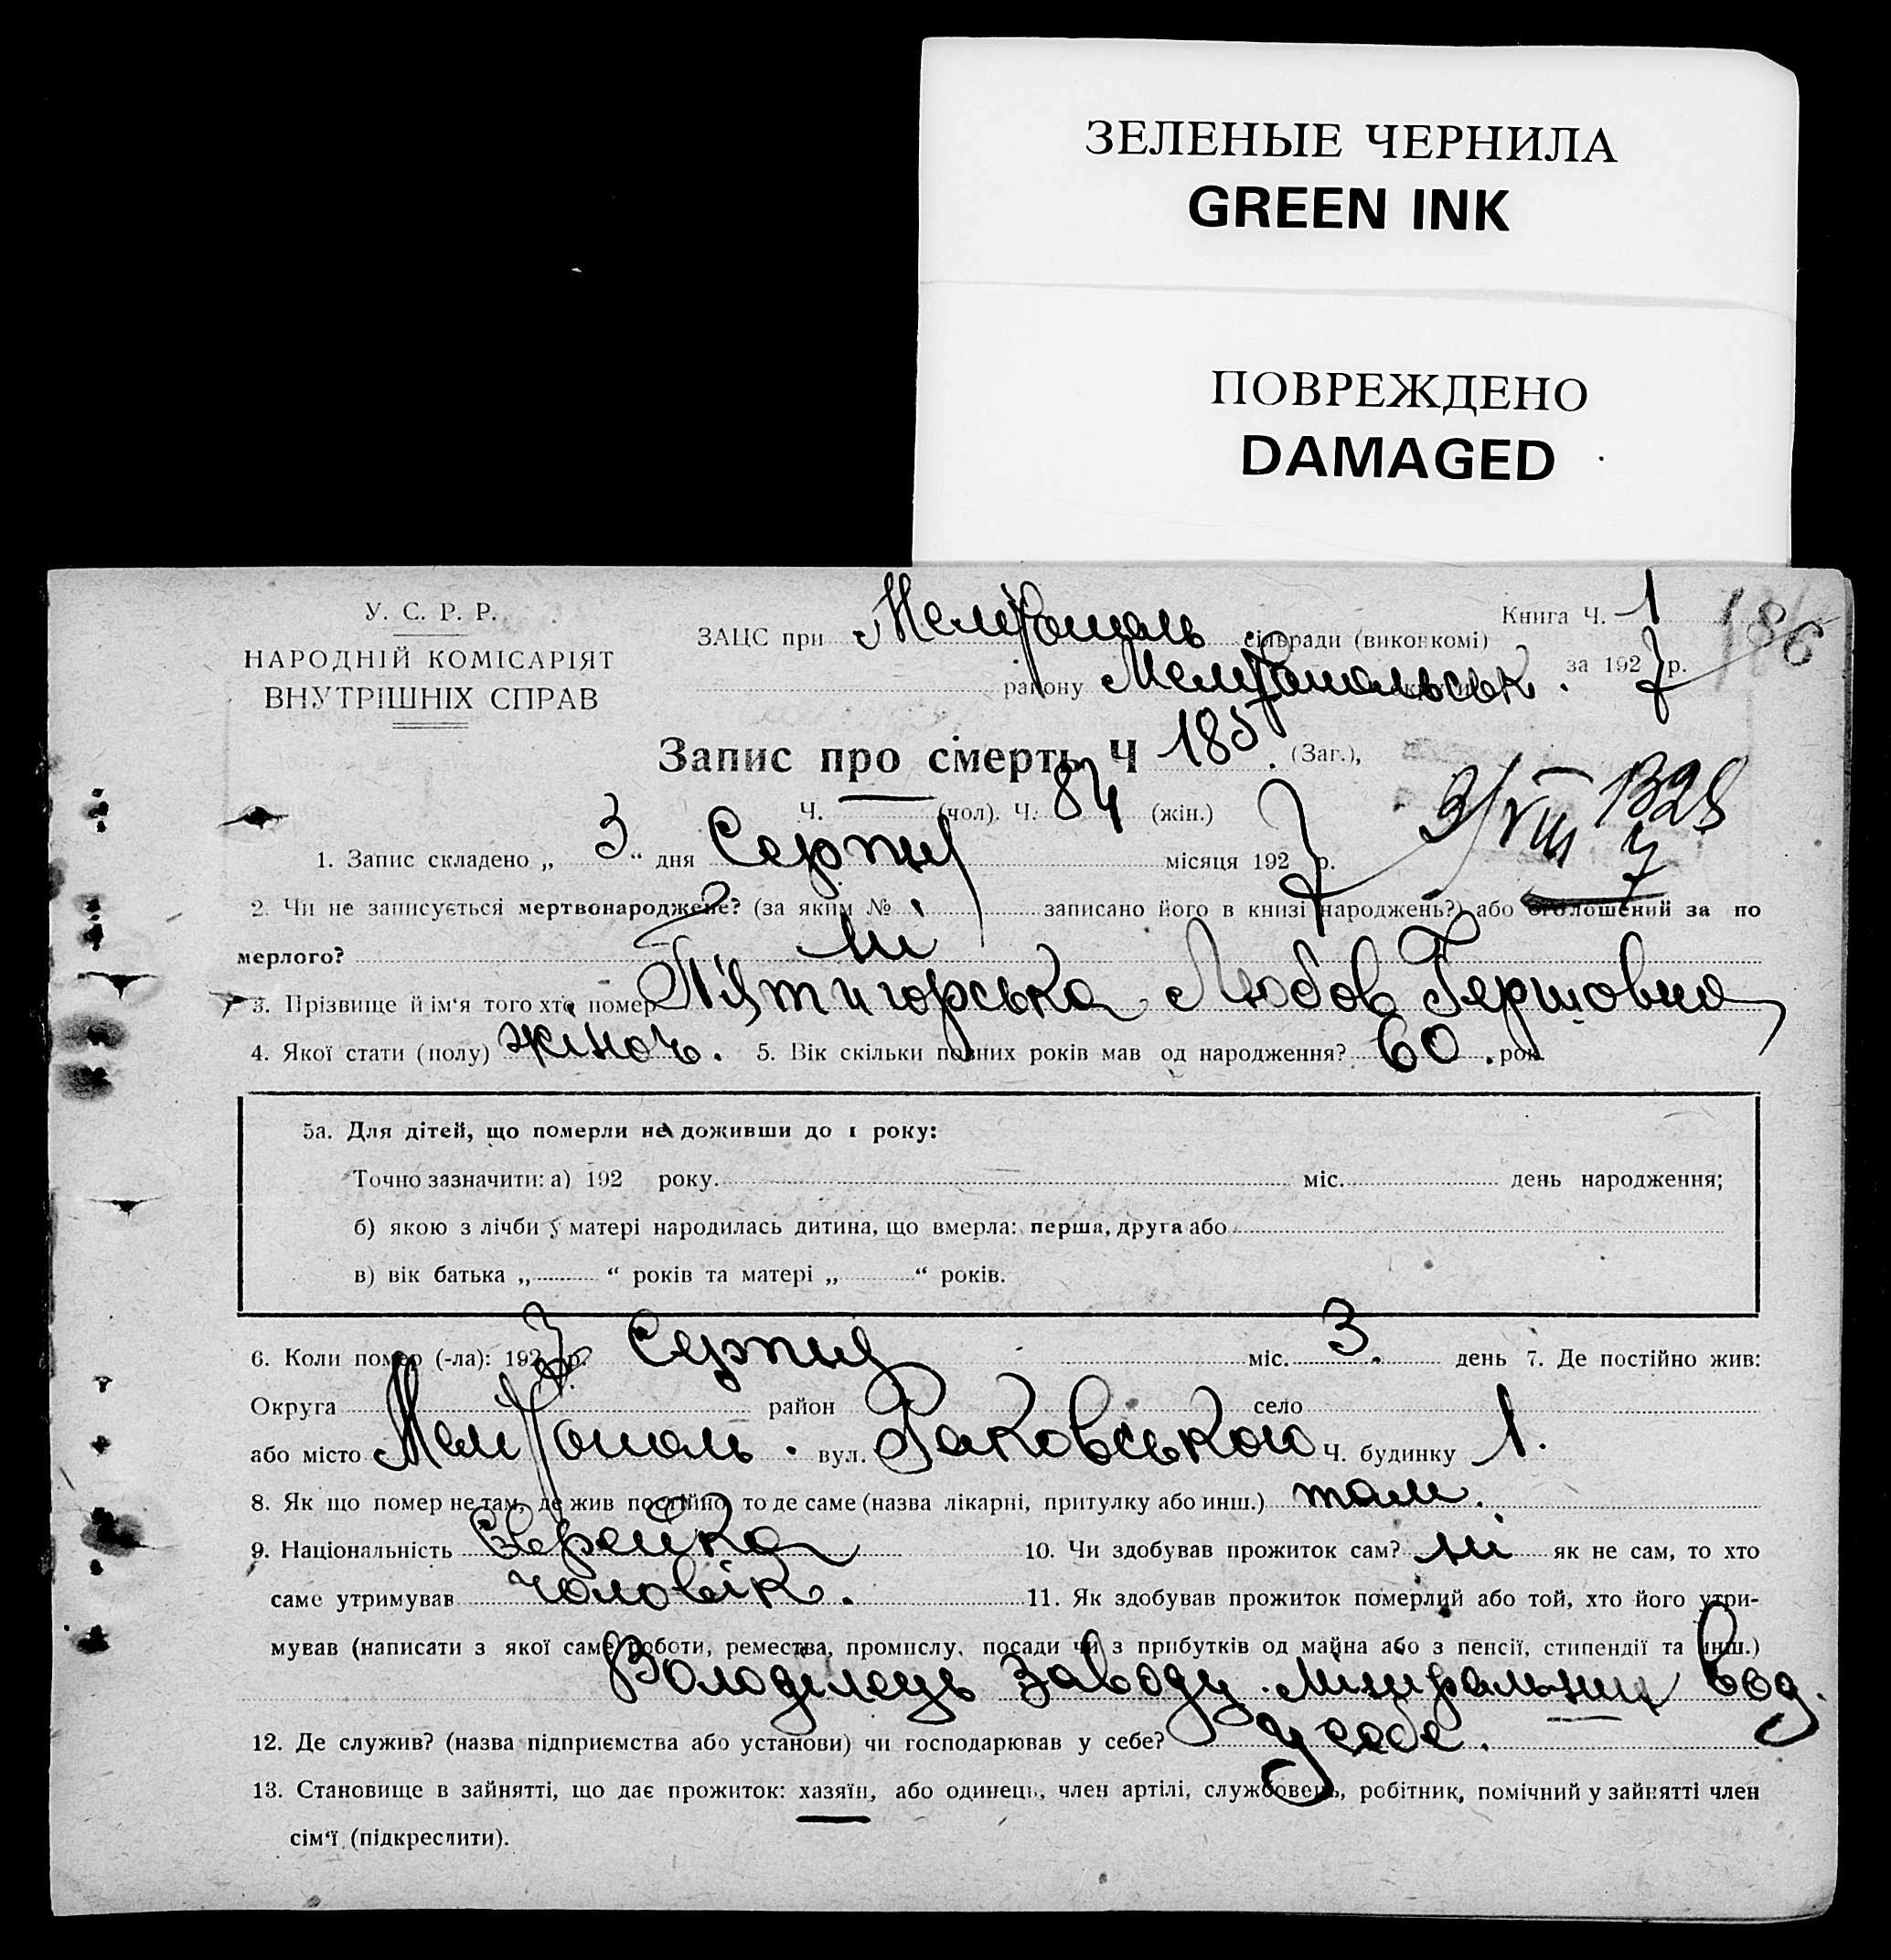 ЗЕЛЕНЫЕ ЧЕРНИЛА
GREEN INK
ПОВРЕЖДЕНО
DAMAGED
У. С. Р. Р.
НАРОДНІЙ КОМІСАРІЯТ
ВНУТРІШНІХ СПРАВ
Книга Ч. 1
186
ЗАЦС при Мелітополь сільради (виконкомі)
району Мелітопольськ. за 1927 р.
Запис про смерть Ч 185. (Заг.),
Ч. — (чол). Ч. 84 (жін.)
3/VIII
1. Запис складено „ 3 “ дня Серпня місяця 1927 р.
2. Чи не записується мертвонароджене? (за яким № записано його в книзі народжень?) або оголошений за по
мерлого? ні
3. Прізвище й ім‘я того хто помер П'ятигорська Любов Гершовна
4. Якої стати (полу) жіноч. 5. Вік скільки повних років мав од народження? 60. рок.
5а. Для дітей, що померли не доживши до 1 року:
Точно зазначити: а) 192 року. міс. день народження;
б) якою з лічби у матері народилась дитина, що вмерла: перша, друга або
в) вік батька „ “ років та матері „ “ років.
6. Коли помер (-ла): 1927 р. Серпня міс. 3. день 7. Де постійно жив:
Округа район село
або місто Мелітополь. вул. Раковською Ч. будинку 1.
8. Як що помер не там, де жив постійно, то де саме (назва лікарні, притулку або инш.) там.
9. Національність Єврейка 10. Чи здобував прожиток сам? ні як не сам, то хто
саме утримував чоловік. 11. Як здобував прожиток померлий або той, хто його утри-
мував (написати з якої саме роботи, ремества, промислу, посади чи з прибутків од майна або з пенсії, стипендії та инш.)
Володілець заводу мінеральних вод.
12. Де служив? (назва підприємства або установи) чи господарював у себе? у себе.
13. Становище в зайнятті, що дає прожиток: хазяїн, або одинець, член артілі, службовець, робітник, помічний у зайнятті член
сім‘ї (підкреслити).